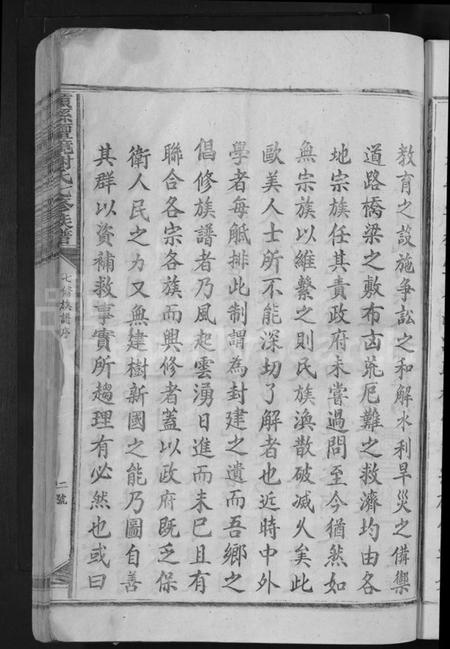 教育之設施爭訟之和解水利旱災之備禦
道路橋梁之敷布凶荒厄難之救濟均由各
地宗族任其責政府未嘗過問至今猶然如
無宗族以維繫之則民族渙散破滅久矣此
歐美人士所不能深切了解者也近時中外
學者每觝排此制謂為封建之遺而吾鄉之
倡修族譜者乃風起雲湧日進而未已且有
聯合各宗各族而興修者蓋以政府既乏保
衛人民之力又無建樹新國之能乃圖自善
其群以資補救事實所趨理有必然也或曰
謝氏七修族譜
七修族譜序
二號